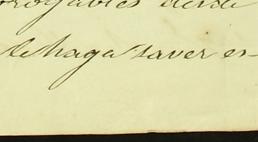 desde
se haga saver es-